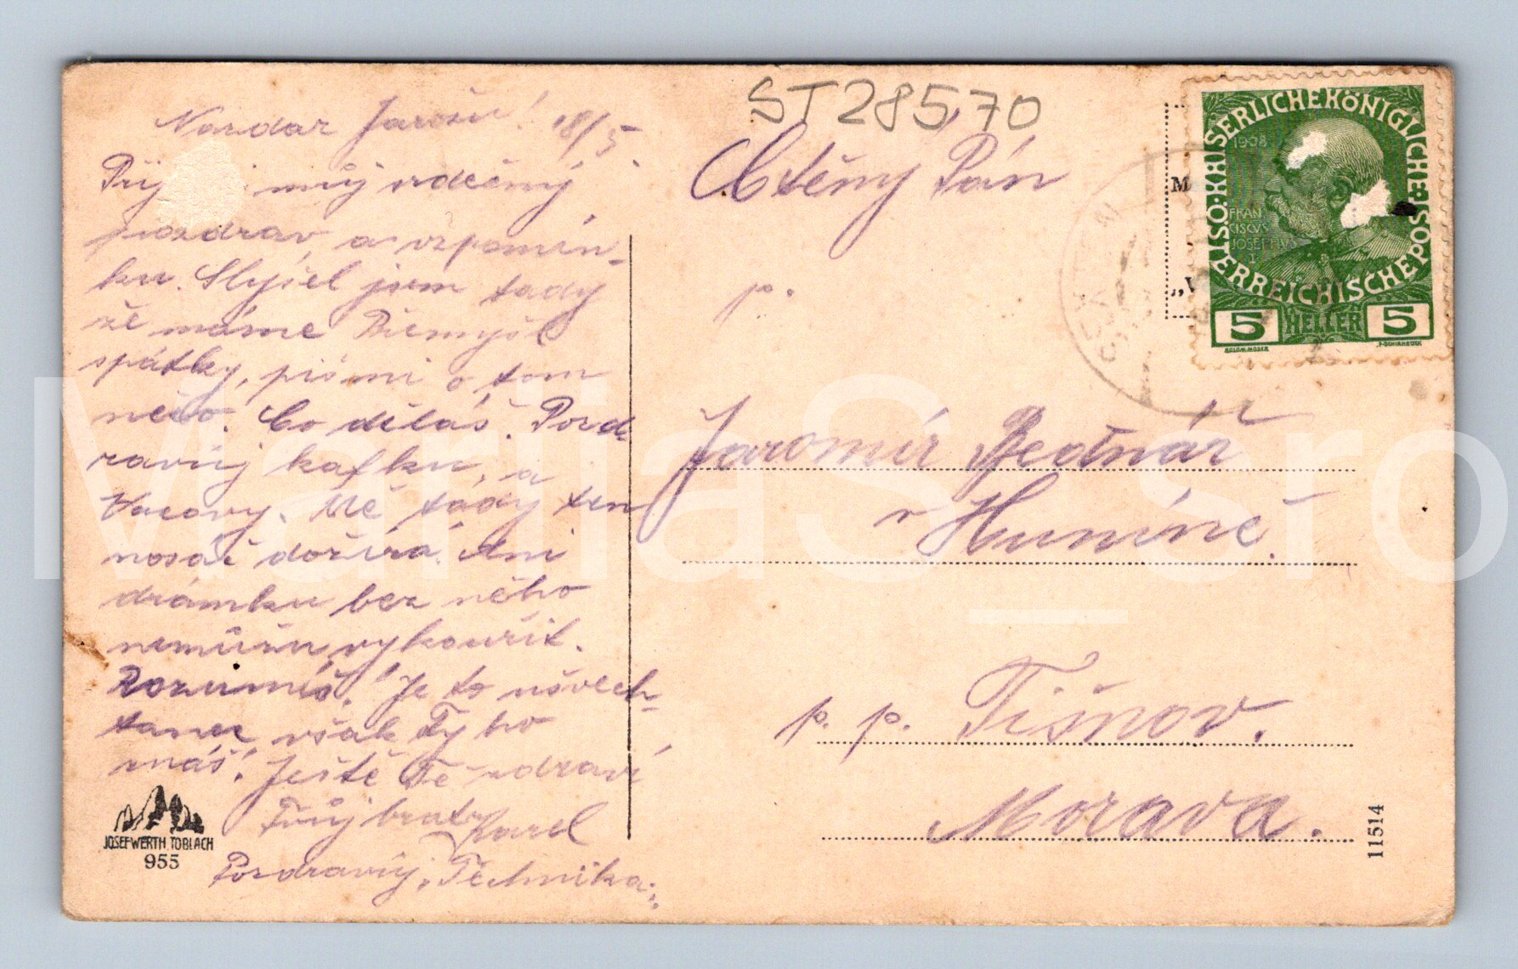 Nazdar Jarouši! 18/5.
Přij i můj vděčný
pozdrav a vzpomín-
ku. Slyšel jsem tady
že máme Přemyšl
spátky, pišmi o tom
něco. Co děláš. Pozd
ravůj kafku, a
Vacovy. Mě tády ten
nosáč dožírá. Ani
drámku bez něho
nemůžu vykouřit.
Rozumíš! Je to
však Ty ho
máš! Ještě Tě zdraví
Tvůj bratr Karel
Pozdravůj, Technika.
JOSEF WERTH TOBLACH
955
ST28570
Ctěny Pán
p.
Jaromír Bednář
v Humíně.
p. p. Tišnov.
Morava.
11514
KAISERLICHEKÖNIGLICHE
ÖSTERREICHISCHEPOST
1908
FRAN
CISCVS
JOSEPHVS
I
5 HELLER 5
MariiaS_sro